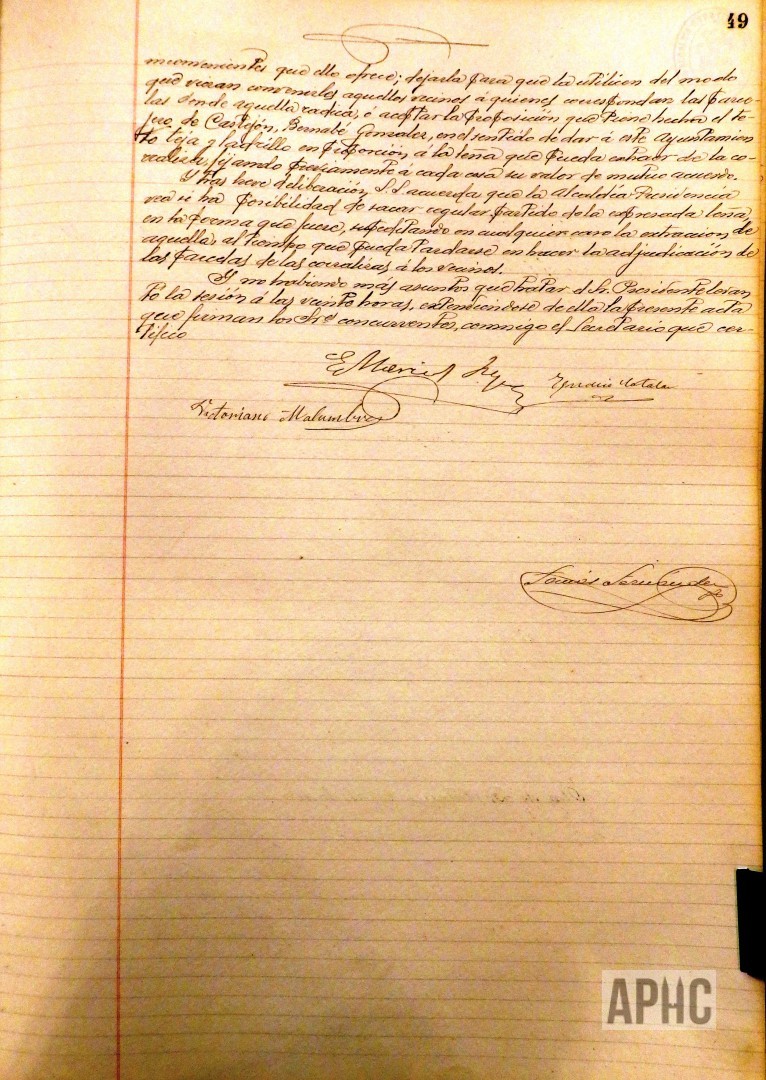 49
inconvenientes que ello ofrece; dejarla para que la utilicen del modo
que vieran convenirles aquellos vecinos á quienes correspondan las parce-
las donde aquella radica, ó aceptar la proposición que tiene hecha el te-
jero de Castejón, Bernabé Gonzalez, en el sentido de dar á este Ayuntamien
to teja y ladrillo en proporción á la leña que pueda extraer de la co-
rraliza, fijando previamente á cada cosa su valor de mutuo acuerdo.
Y tras breve deliberación, S.S. acuerda que la Alcaldía-Presidencia
vea si há posibilidad de sacar regular partido de la expresada leña,
en la forma que fuere, supeditando en cualquier caso la extracion de
aquella, al tiempo que pueda tardarse en hacer la adjudicación de
las parcelas de las corralizas á los vecinos.
Y no habiendo más asuntos que tratar el Sr. Presidente levan
tó la sesión á las veinte horas, extendiéndose de ella la presente acta
que firman los Sres concurrentes, conmigo el Secretario que cer-
tifico
Victoriano Malumbres
APHC